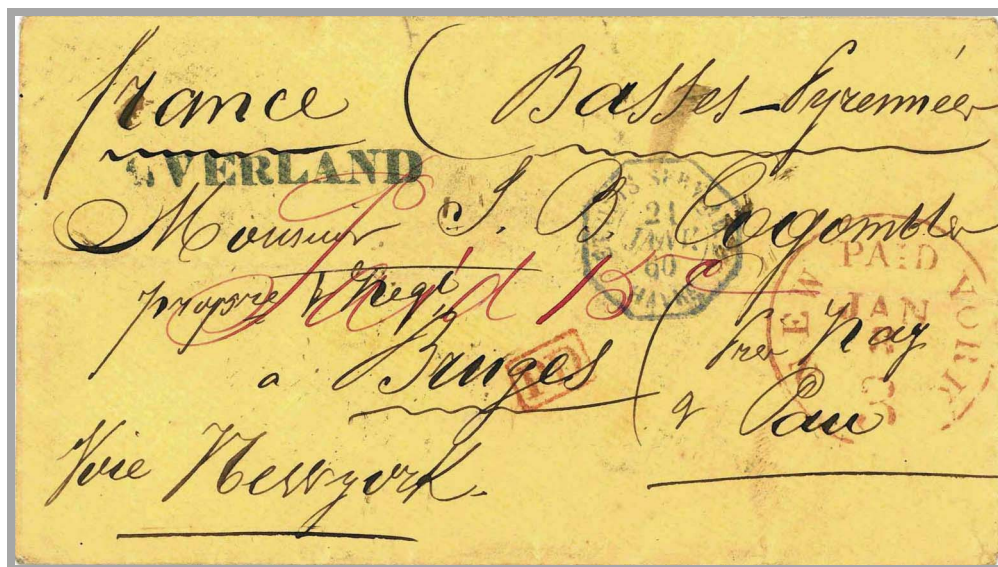 france ( Basses-Pyrennées
OVERLAND
Monsieur J. B.
21
JANV.
60
HAVRE
NEW YORK
PAID
JAN
Paid 15
propre & Negt
PD
a Bruges ( Près Nay
& Pau
Voie Newyork.